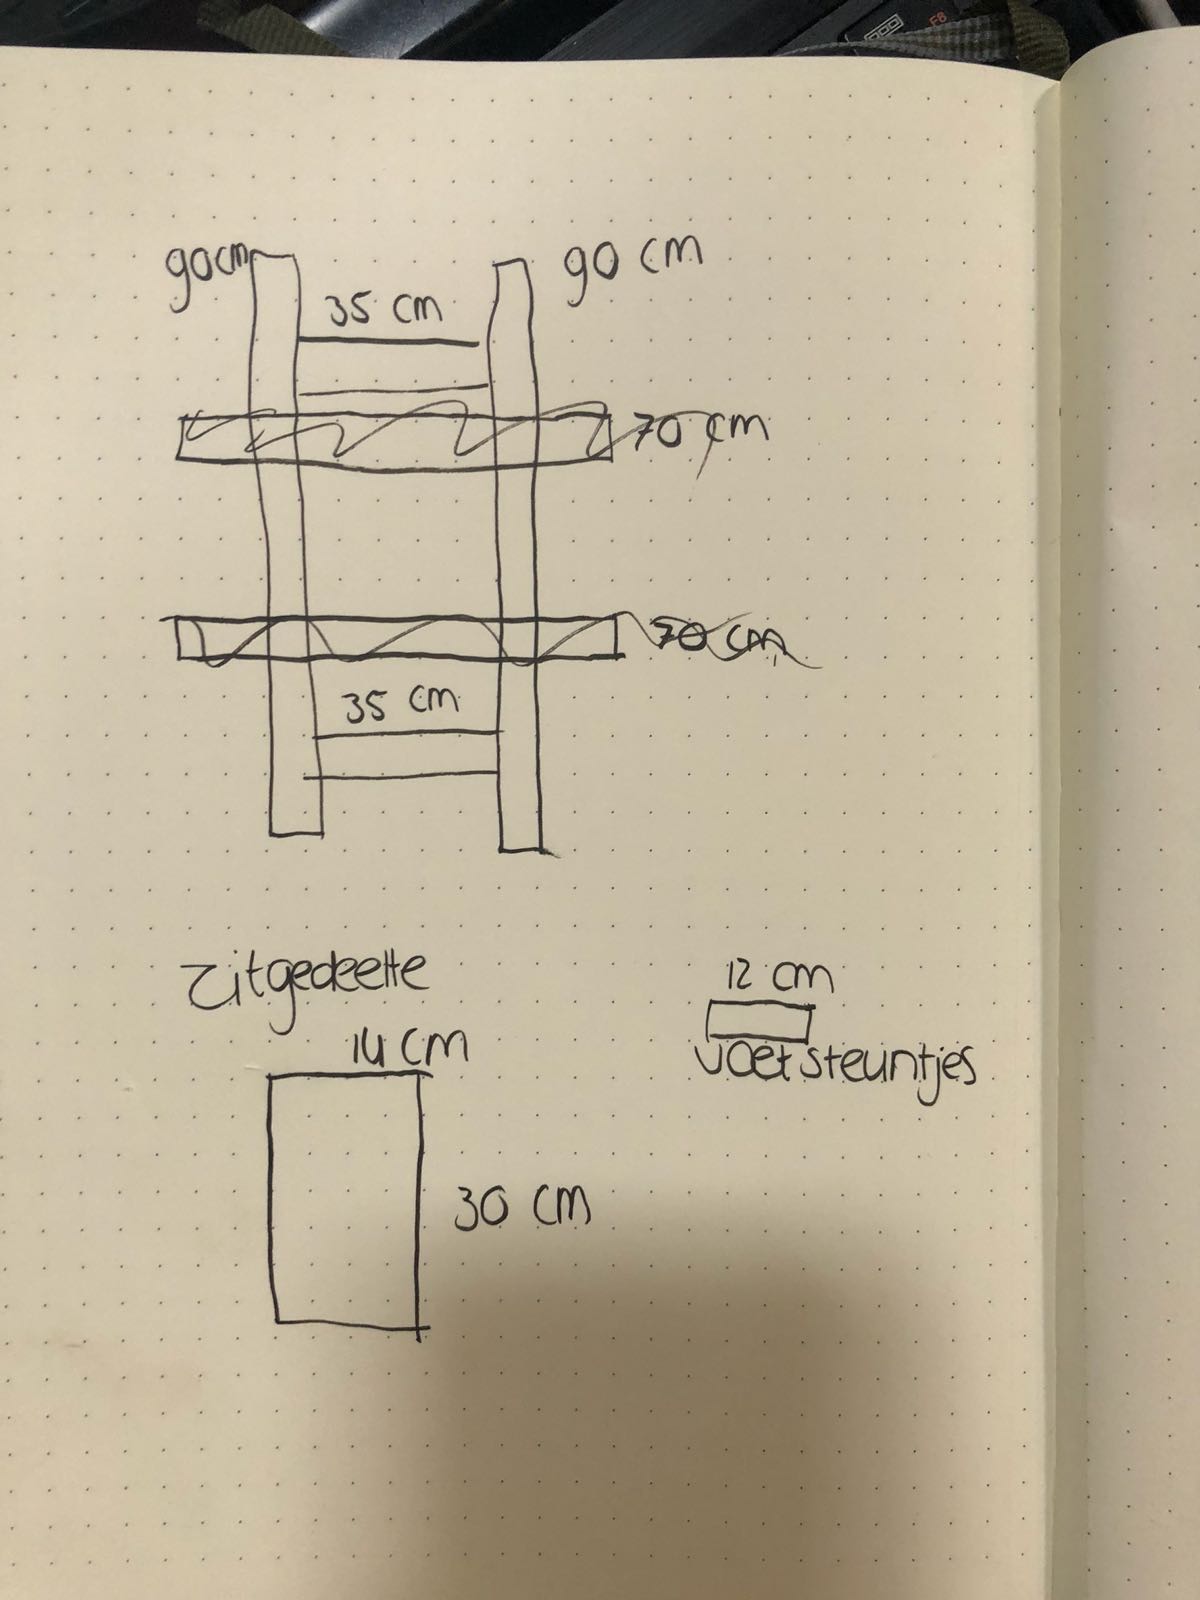 90 cm
90 cm
35 cm
70 cm
70 cm
35 cm
zitgedeelte
14 cm
30 cm
12 cm
voetsteuntjes
F8